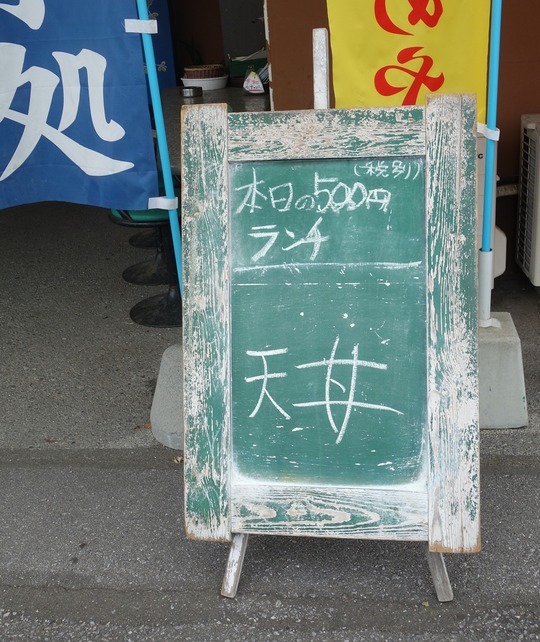 処
(税別)
本日の500円
ランチ
天丼